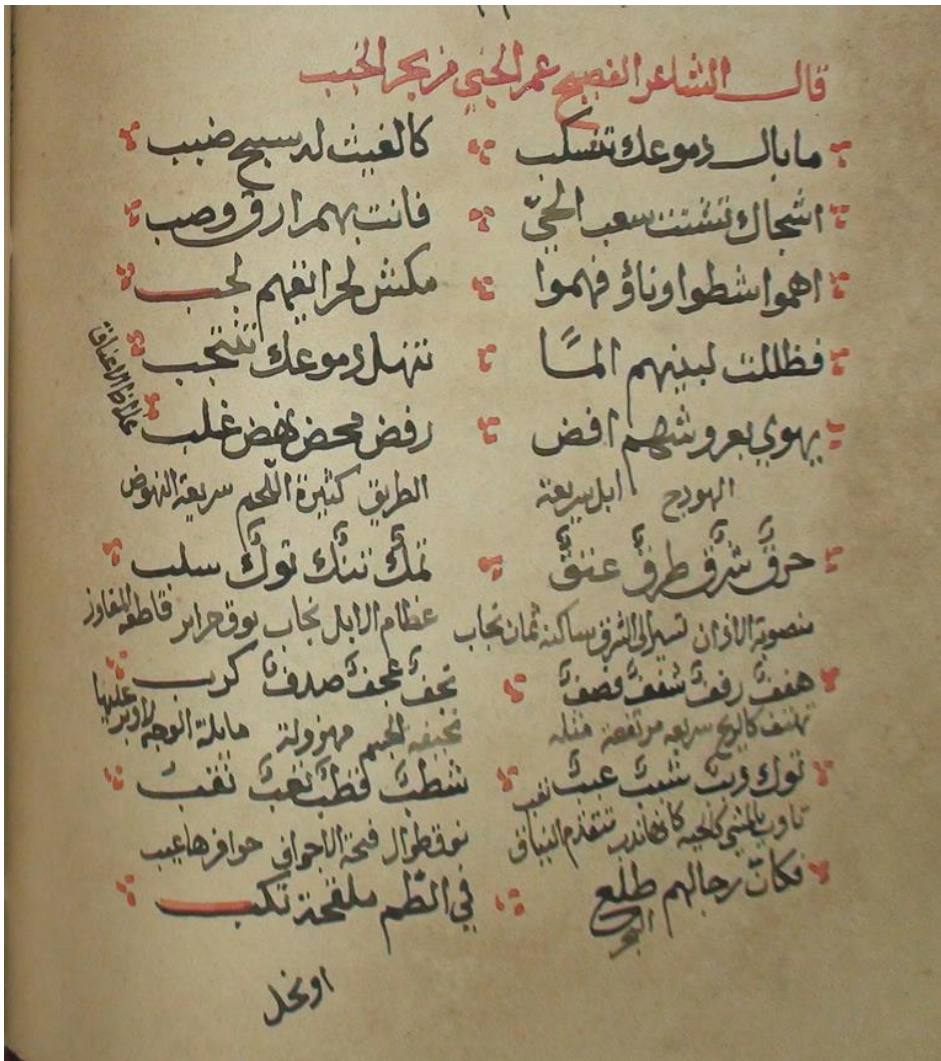 قال الشاعر الفصيح عمر الجني من بحر الخبب
مابال دموعك تنسكب كالغيث له سيح ضبب
اشجاك تشتت سعب الحيّ فانت بهم ارق وصب
اهموا شطوا وناؤ فهموا لجب
فظللت لبينهم المًا تنهل دموعك تنتحب
يهوي بعروشهم افض رفض محض نهض غلب
غلاظ الاعناق
الهودج ابل سريعة الطريق كثيرة اللحم سريعة النهوض
حرق شرق طرق عنتق تمك تنك توك سلب
منصوبة الاذان تسير الى الشرق ساكنة ثمان نجاب عظام الابل نجاب نوق حراير قاطعه المفاوز
هفف رفف شفف قصف نحف عجف صدف كرب
كالريح سريعه مرتفعة نحيفه الجسم مهزولة مايلة الوجه لاوبر عليها
توك شبب عبب شطب قطب نعب نقب
تتقدم النياق نوق طوال الاجواف حوافرها عيب
فكانّ رجالهم طلع في الظم ملقحة تكب
او نخل